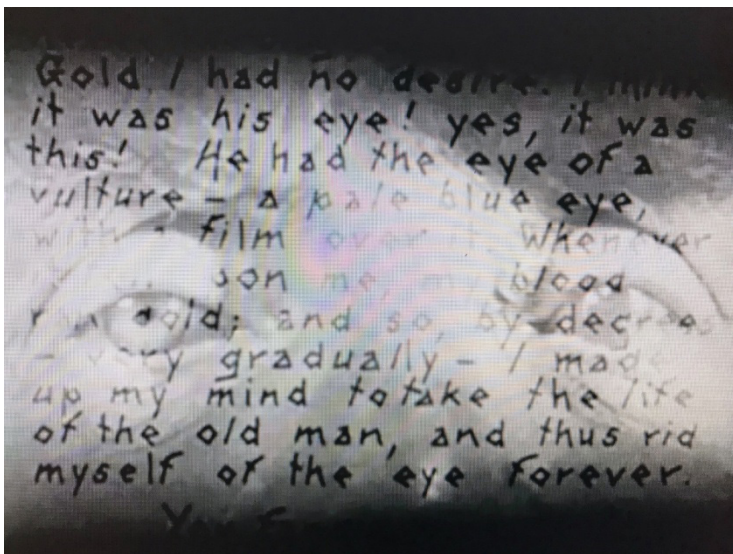 Gold I had no desire. I think
it was his eye! yes, it was
this! He had the eye of a
vulture – a pale blue eye,
with a film over it. Whenever
on me, my blood
ran cold; and so, by degrees
– very gradually – I made
up my mind to take the life
of the old man, and thus rid
myself of the eye forever.